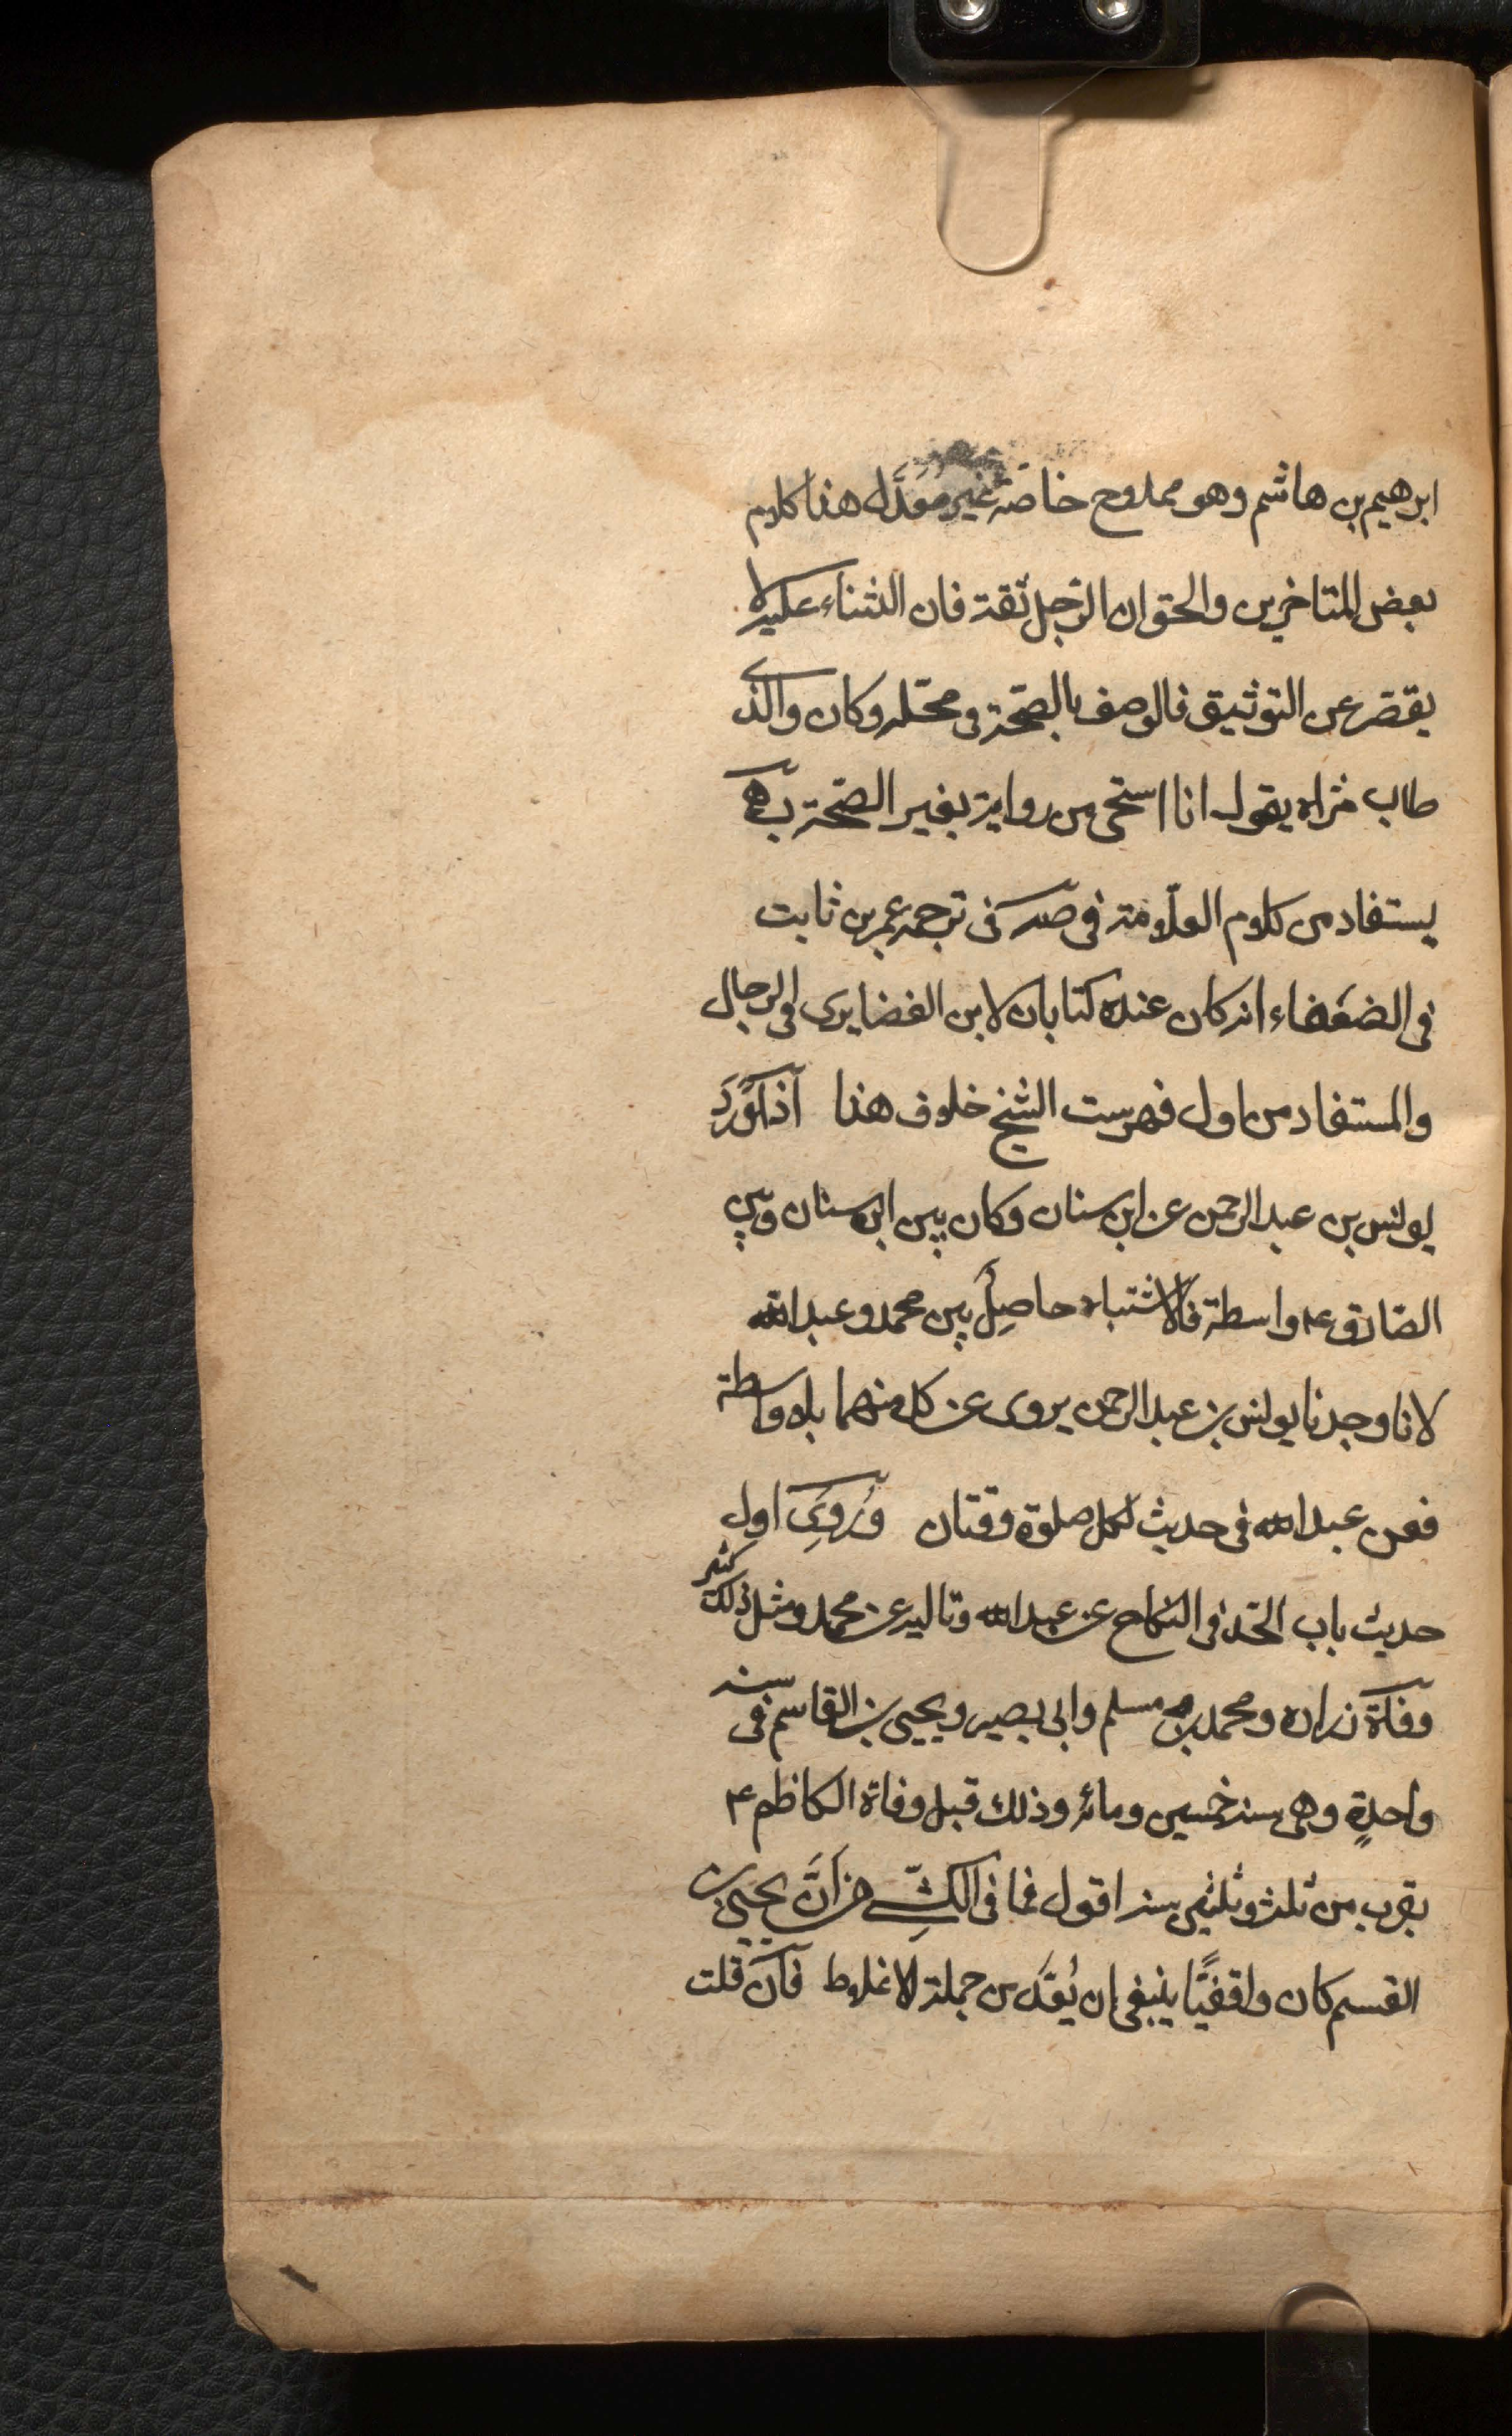 ابرهيم بن هاشم وهو ممدوح خاصة غير معدّل هذا كلام
بعض المتاخرين والحق ان الرّجل ثقة فان الثناء عليه لا
يقصر عن التوثيق فالوصف بالصّحة فى محلّه وكان والدى
طاب ثراه يقول انا استحى من رواية بغير الصّحّة
يستفاد من كلام العلّامة فى صه فى ترجمه عمر بن ثابت
فى الضعفاء انه كان عنده كتابان لابن الغضايرى فى الرجال
والمستفاد من اول فهرست الشيخ خلاف هذا اذا وَرَدَ
يونس بن عبد الرحمن عن ابن سنان وكان بين ابن سنان وبين
الصّادق ع واسطة فالاشتباه حاصِلُ بين محمد وعبد الله
لانا وجدنا يونس بن عبد الرحمن يروى عن كل منهما بلا واسطة
فعن عبد الله فى حديث لكل صلوة وقتان ورُوِىَ اول
حديث باب الحد فى النكاح عن عبد الله وتاليه عن محمد ومثل ذلك كثير
وفاة زراره ومحمد بن مسلم وابى بصير ويحيى بن القاسم فى سنه
واحدةٍ وهى سنه خمسين ومائه وذلك قبل وفاة الكاظم ع
بقرب من ثلث وثلثين سنه اقول فما فى الكشّى من اَنَّ يحيى بن
القسم كان واقفيًّا ينبغى ان يُعَدّ من جملة الاغلاط فان قلت